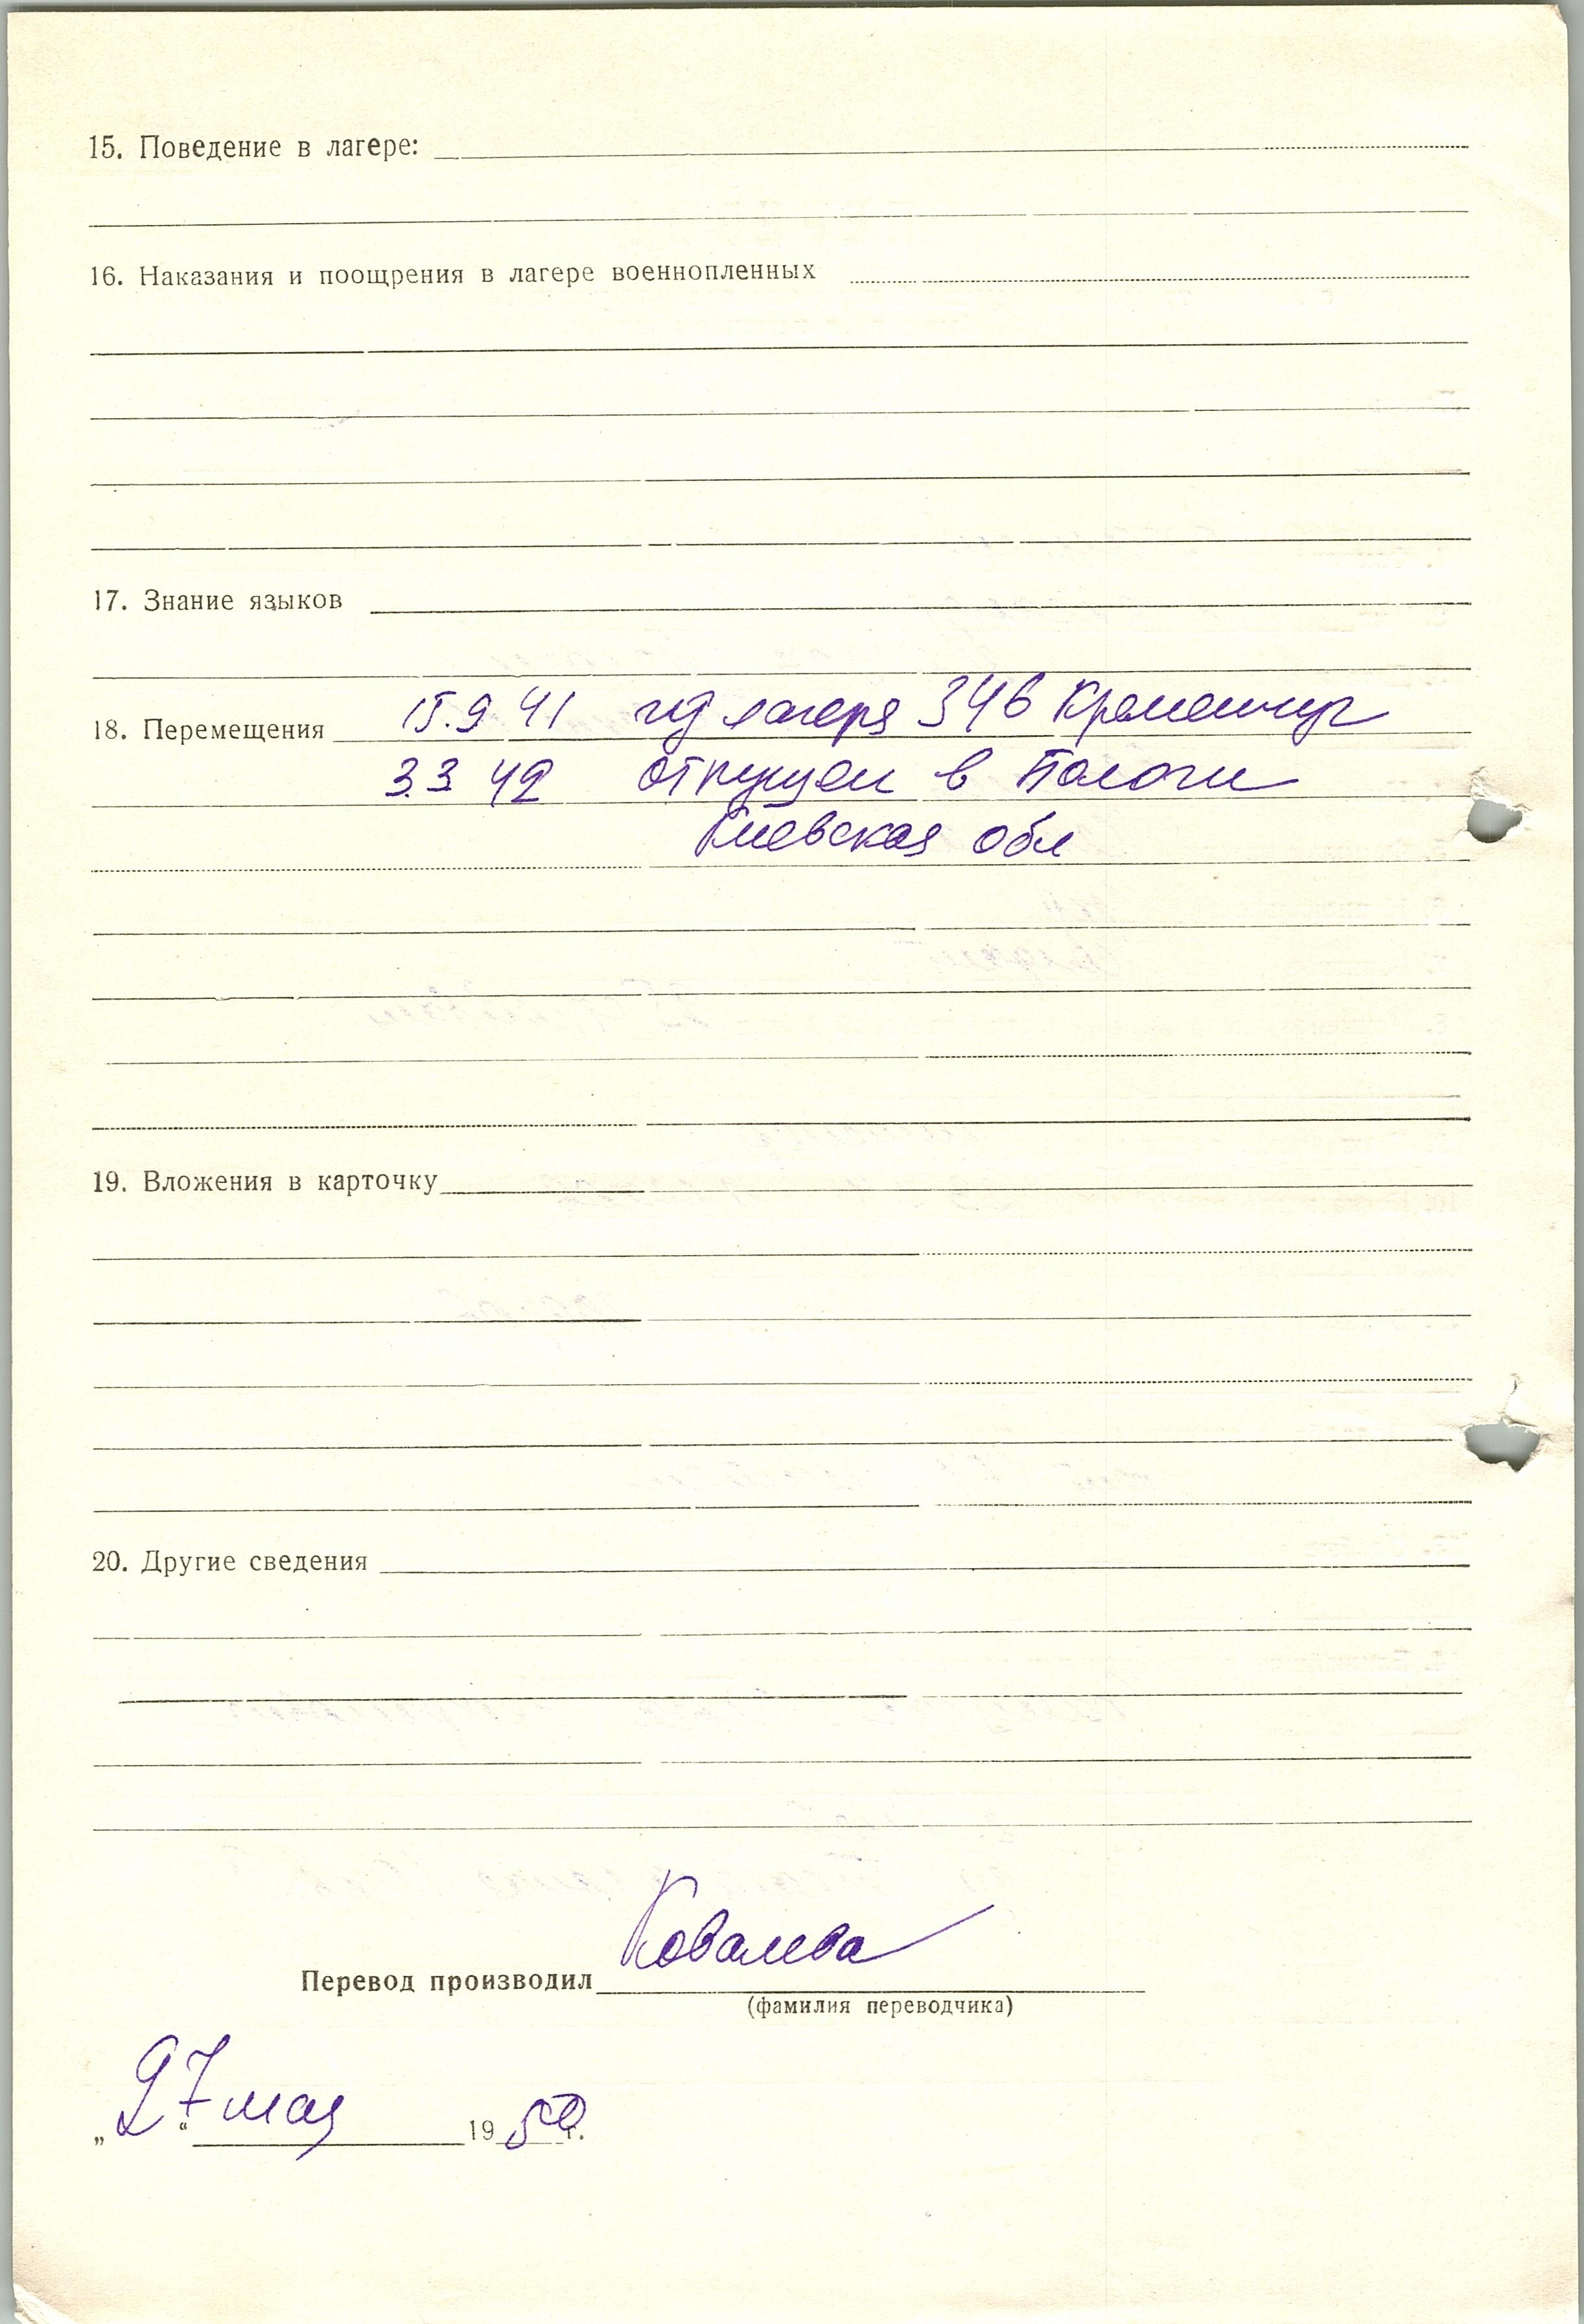 15. Поведение в лагере:
16. Наказания и поощрения в лагере военнопленных
17. Знание языков
18. Перемещения 15.9 41 из лагеря 346 Кременчуг
3.3 42 отпущен в Пологи
Киевская обл
19. Вложения в карточку
20. Другие сведения
Ковалева
Перевод производил
(фамилия переводчика)
„27“ мая 1950 г.